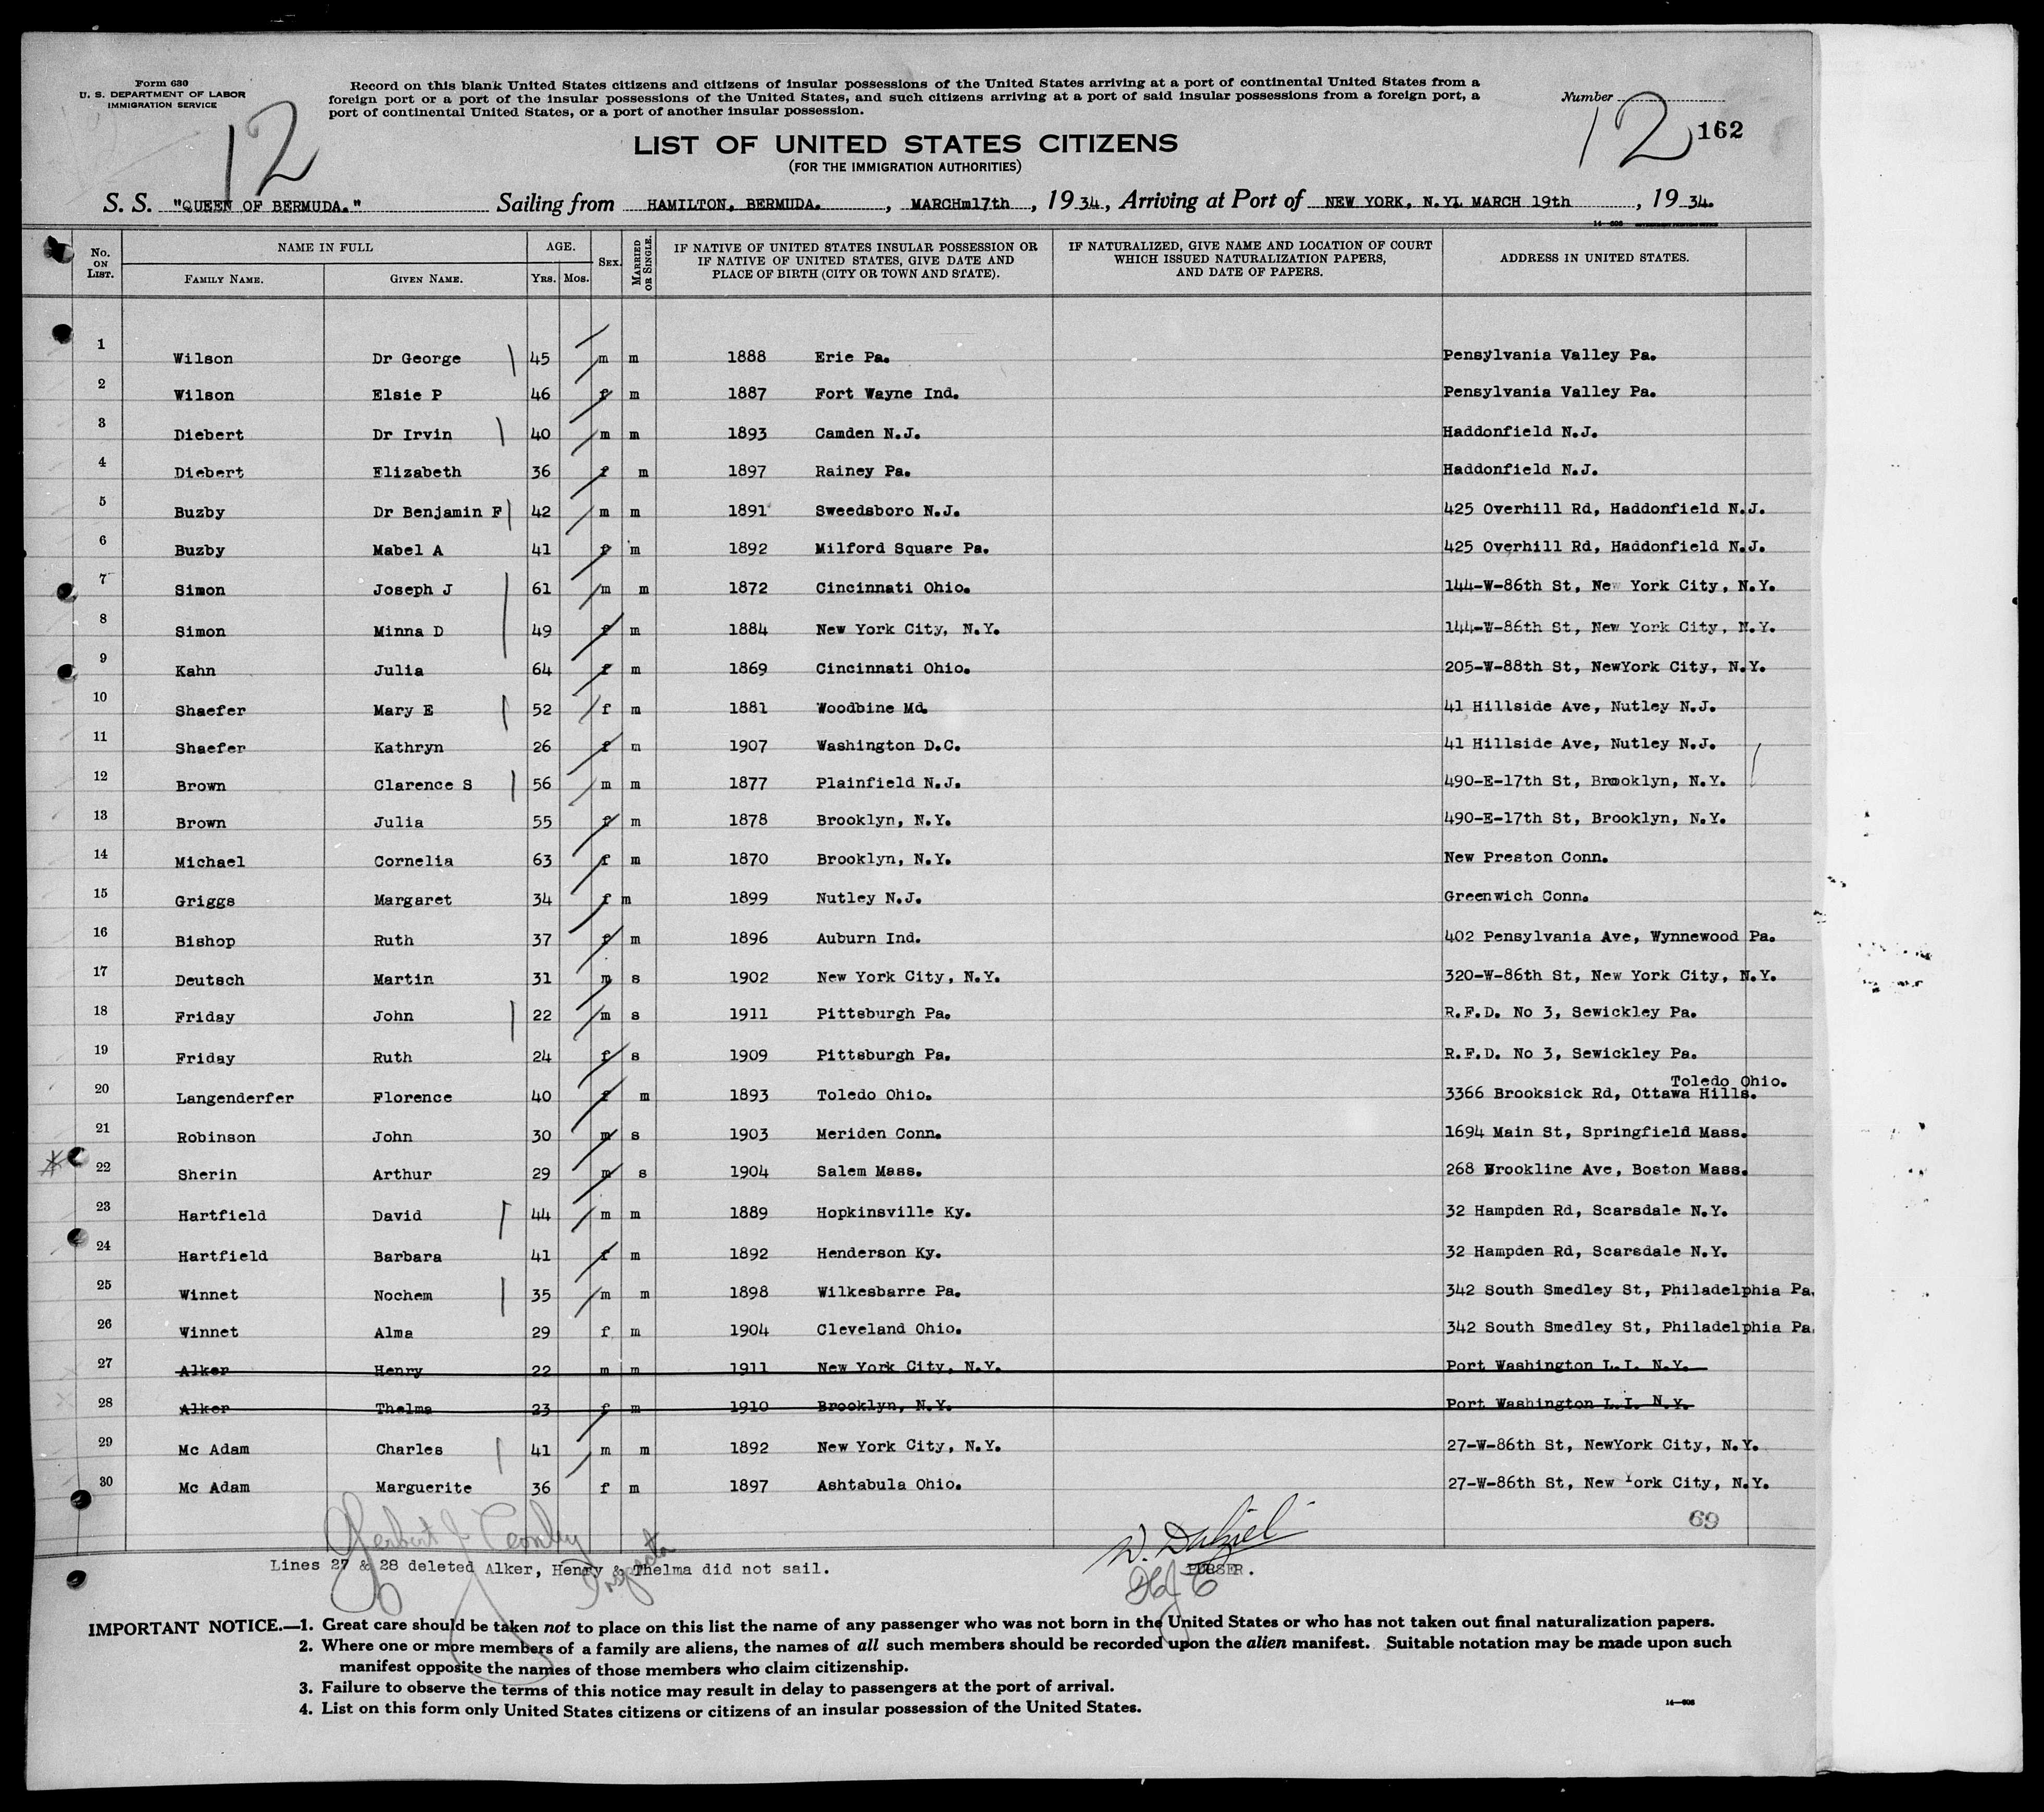 Form 630
U. S. DEPARTMENT OF LABOR
IMMIGRATION SERVICE
Record on this blank United States citizens and citizens of insular possessions of the United States arriving at a port of continental United States from a
foreign port or a port of the insular possessions of the United States, and such citizens arriving at a port of said insular possessions from a foreign port, a
port of continental United States, or a port of another insular possession.
Number
12
12
162
LIST OF UNITED STATES CITIZENS
(FOR THE IMMIGRATION AUTHORITIES)
S. S. "QUEEN OF BERMUDA." Sailing from HAMILTON, BERMUDA. , MARCHm17th , 19 34, Arriving at Port of NEW YORK, N.YL MARCH 19th , 19 34.
No. ON LIST. NAME IN FULL AGE. SEX. MARRIED OR SINGLE. IF NATIVE OF UNITED STATES INSULAR POSSESSION OR IF NATIVE OF UNITED STATES, GIVE DATE AND PLACE OF BIRTH (CITY OR TOWN AND STATE). IF NATURALIZED, GIVE NAME AND LOCATION OF COURT WHICH ISSUED NATURALIZATION PAPERS, AND DATE OF PAPERS. ADDRESS IN UNITED STATES.
FAMILY NAME. GIVEN NAME. YRS. MOS.
1 Wilson Dr George 45 m m 1888 Erie Pa. Pensylvania Valley Pa.
2 Wilson Elsie P 46 f m 1887 Fort Wayne Ind. Pensylvania Valley Pa.
3 Diebert Dr Irvin 40 m m 1893 Camden N.J. Haddonfield N.J.
4 Diebert Elizabeth 36 f m 1897 Rainey Pa. Haddonfield N.J.
5 Buzby Dr Benjamin F 42 m m 1891 Sweedsboro N.J. 425 Overhill Rd, Haddonfield N.J.
6 Buzby Mabel A 41 f m 1892 Milford Square Pa. 425 Overhill Rd, Haddonfield N.J.
7 Simon Joseph J 61 m m 1872 Cincinnati Ohio. 144-W-86th St, New York City, N.Y.
8 Simon Minna D 49 f m 1884 New York City, N.Y. 144-W-86th St, New York City, N.Y.
9 Kahn Julia 64 f m 1869 Cincinnati Ohio. 205-W-88th St, NewYork City, N.Y.
10 Shaefer Mary E 52 f m 1881 Woodbine Md. 41 Hillside Ave, Nutley N.J.
11 Shaefer Kathryn 26 f m 1907 Washington D.C. 41 Hillside Ave, Nutley N.J.
12 Brown Clarence S 56 m m 1877 Plainfield N.J. 490-E-17th St, Brooklyn, N.Y.
13 Brown Julia 55 f m 1878 Brooklyn, N.Y. 490-E-17th St, Brooklyn, N.Y.
14 Michael Cornelia 63 f m 1870 Brooklyn, N.Y. New Preston Conn.
15 Griggs Margaret 34 f m 1899 Nutley N.J. Greenwich Conn.
16 Bishop Ruth 37 f m 1896 Auburn Ind. 402 Pensylvania Ave, Wynnewood Pa.
17 Deutsch Martin 31 m s 1902 New York City, N.Y. 320-W-86th St, New York City, N.Y.
18 Friday John 22 m s 1911 Pittsburgh Pa. R.F.D. No 3, Sewickley Pa.
19 Friday Ruth 24 f s 1909 Pittsburgh Pa. R.F.D. No 3, Sewickley Pa.
Toledo Ohio.
20 Langenderfer Florence 40 f m 1893 Toledo Ohio. 3366 Brooksick Rd, Ottawa Hills.
21 Robinson John 30 m s 1903 Meriden Conn. 1694 Main St, Springfield Mass.
22 Sherin Arthur 29 m s 1904 Salem Mass. 268 Brookline Ave, Boston Mass.
23 Hartfield David 44 m m 1889 Hopkinsville Ky. 32 Hampden Rd, Scarsdale N.Y.
24 Hartfield Barbara 41 f m 1892 Henderson Ky. 32 Hampden Rd, Scarsdale N.Y.
25 Winnet Nochem 35 m m 1898 Wilkesbarre Pa. 342 South Smedley St, Philadelphia Pa.
26 Winnet Alma 29 f m 1904 Cleveland Ohio. 342 South Smedley St, Philadelphia Pa.
27 Alker Henry 22 m m 1911 New York City, N.Y. Port Washington L.I. N.Y.
28 Alker Thelma 23 f m 1910 Brooklyn, N.Y. Port Washington L.I. N.Y.
29 Mc Adam Charles 41 m m 1892 New York City, N.Y. 27-W-86th St, NewYork City, N.Y.
30 Mc Adam Marguerite 36 f m 1897 Ashtabula Ohio. 27-W-86th St, New York City, N.Y.
69
Herbert J Inspector
Lines 27 & 28 deleted Alker, Henry & Thelma did not sail.
PURSER.
IMPORTANT NOTICE.—1. Great care should be taken not to place on this list the name of any passenger who was not born in the United States or who has not taken out final naturalization papers.
2. Where one or more members of a family are aliens, the names of all such members should be recorded upon the alien manifest. Suitable notation may be made upon such
manifest opposite the names of those members who claim citizenship.
3. Failure to observe the terms of this notice may result in delay to passengers at the port of arrival.
4. List on this form only United States citizens or citizens of an insular possession of the United States.